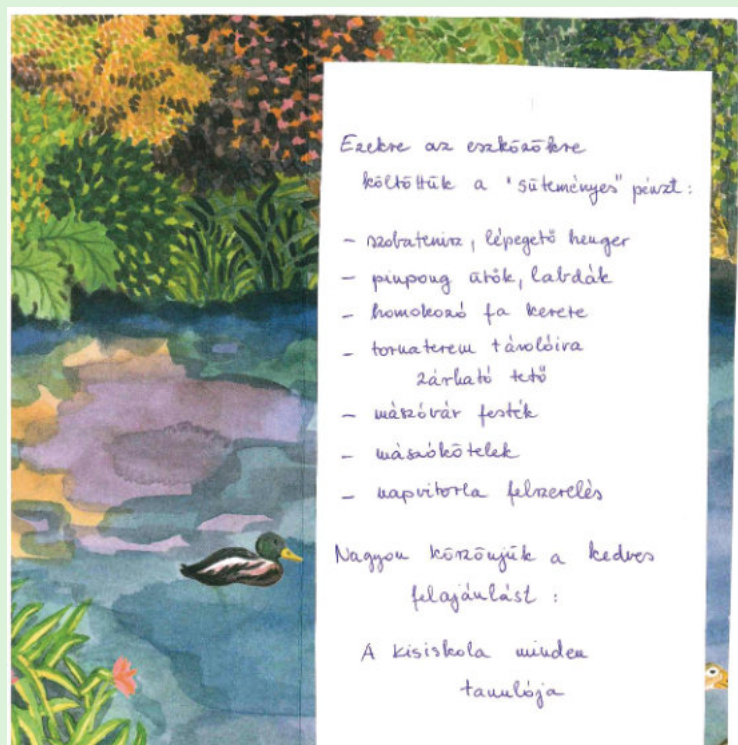 Ezekre az eszközökre
költöttük a "süteményes" pénzt:
- szobatenisz, lépegető henger
- pinpong ütők, labdák
- homokozó fa kerete
- tornaterem tárolóira
zárható tető
- mászóvár festék
- mászókötelek
- napvitorla felszerelés
Nagyon köszönjük a kedves
felajánlást:
A kisiskola minden
tanulója